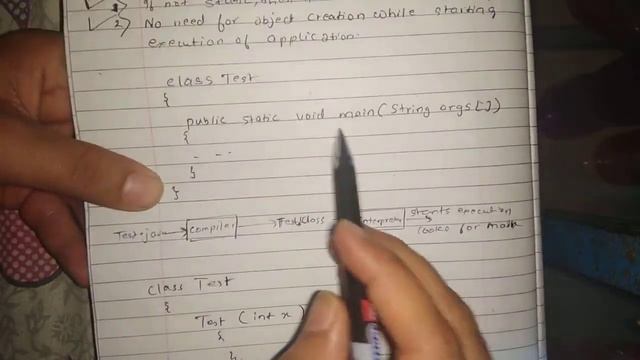 1) If not static,
2) No need for object creation while starting
execution of application.
class Test
{
public static void main(String args[])
{
- - --
}
}
Test.java → compiler → Test.class interpreter starts execution
looks for main
class Test
{
Test (int x)
{
}